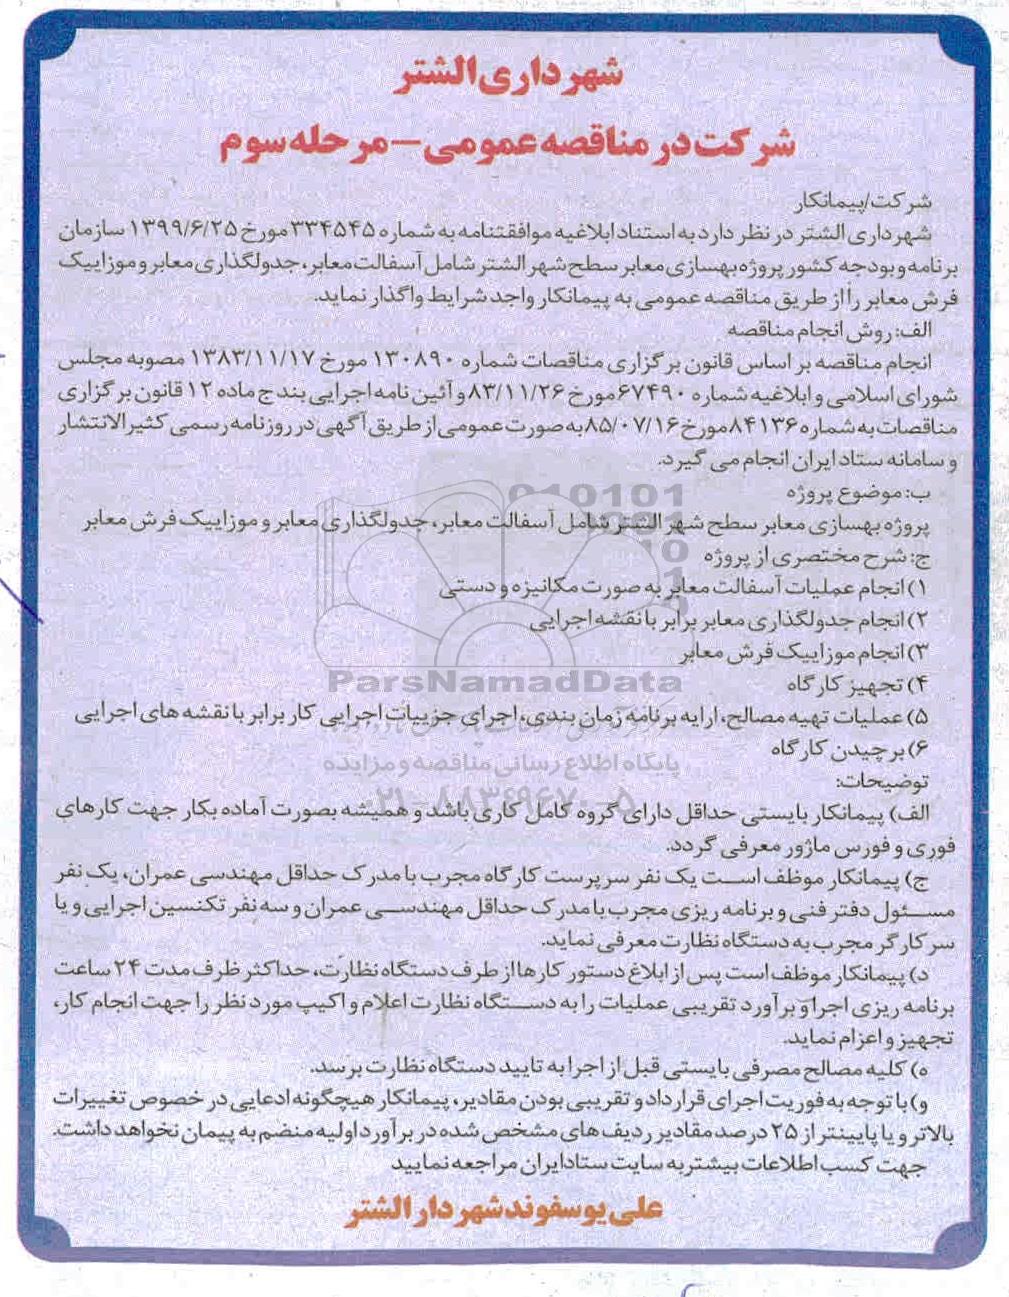 شهرداری الشتر
شرکت در مناقصه عمومی – مرحله سوم
شرکت/پیمانکار
شهرداری الشتر در نظر دارد به استناد ابلاغیه موافقتنامه به شماره ۳۳۴۵۴۵ مورخ ۱۳۹۹/۶/۲۵ سازمان
برنامه و بودجه کشور پروژه بهسازی معابر سطح شهر الشتر شامل آسفالت معابر، جدولگذاری معابر و موزاییک
فرش معابر را از طریق مناقصه عمومی به پیمانکار واجد شرایط واگذار نماید.
الف: روش انجام مناقصه
انجام مناقصه بر اساس قانون برگزاری مناقصات شماره ۱۳۰۸۹۰ مورخ ۱۳۸۳/۱۱/۱۷ مصوبه مجلس
شورای اسلامی و ابلاغیه شماره ۶۷۴۹۰ مورخ ۸۳/۱۱/۲۶ و آئین نامه اجرایی بند ج ماده ۱۲ قانون برگزاری
مناقصات به شماره ۸۴۱۳۶ مورخ ۸۵/۰۷/۱۶ به صورت عمومی از طریق آگهی در روزنامه رسمی کثیرالانتشار
و سامانه ستاد ایران انجام می گیرد.
ب: موضوع پروژه
پروژه بهسازی معابر سطح شهر الشتر شامل آسفالت معابر، جدولگذاری معابر و موزاییک فرش معابر
ج: شرح مختصری از پروژه
۱) انجام عملیات آسفالت معابر به صورت مکانیزه و دستی
۲) انجام جدولگذاری معابر برابر با نقشه اجرایی
۳) انجام موزاییک فرش معابر
۴) تجهیز کارگاه
ParsNamadData
۵) عملیات تهیه مصالح، ارایه برنامه زمان بندی، اجرای جزییات اجرایی کار برابر با نقشه های اجرایی
۶) برچیدن کارگاه
پایگاه اطلاع رسانی مناقصه و مزایده
توضیحات:
۰۲۱-۸۸۳۴۹۶۷۰-۵
الف) پیمانکار بایستی حداقل دارای گروه کامل کاری باشد و همیشه بصورت آماده بکار جهت کارهای
فوری و فورس ماژور معرفی گردد.
ج) پیمانکار موظف است یک نفر سرپرست کارگاه مجرب با مدرک حداقل مهندسی عمران، یک نفر
مسئول دفتر فنی و برنامه ریزی مجرب با مدرک حداقل مهندسی عمران و سه نفر تکنسین اجرایی و یا
سرکارگر مجرب به دستگاه نظارت معرفی نماید.
د) پیمانکار موظف است پس از ابلاغ دستور کارها از طرف دستگاه نظارت، حداکثر ظرف مدت ۲۴ ساعت
برنامه ریزی اجرا و برآورد تقریبی عملیات را به دستگاه نظارت اعلام و اکیپ مورد نظر را جهت انجام کار،
تجهیز و اعزام نماید.
ه) کلیه مصالح مصرفی بایستی قبل از اجرا به تایید دستگاه نظارت برسد.
و) با توجه به فوریت اجرای قرارداد و تقریبی بودن مقادیر، پیمانکار هیچگونه ادعایی در خصوص تغییرات
بالاتر و یا پایینتر از ۲۵ درصد مقادیر ردیف های مشخص شده در برآورد اولیه منضم به پیمان نخواهد داشت.
جهت کسب اطلاعات بیشتر به سایت ستاد ایران مراجعه نمایید
علی یوسفوند شهردار الشتر